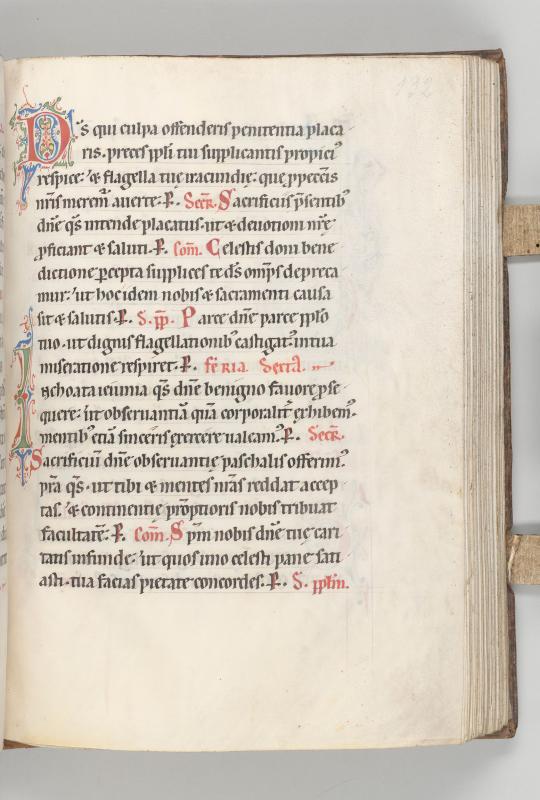 132
Ds̄ qui culpa offenderis penitentia placa
ris. preces ppl̄i tui supplicantis propiciꝰ
respice: ⁊ flagella tue iracundie: que p̱ peccatis
nr̄is meremur̄ auerte. P. Secr̄. Sacrificiis p̄sentibꝫ
dn̄e qs̄ intende placatus. ut ⁊ deuotioni nr̄e
ꝓficiant ⁊ saluti. P. Com̄. Celestis doni bene
dictione ꝑcepta supplices te ds̄ omp̄s depreca
mur: ut hoc idem nobis ⁊ sacramenti causa
sit ⁊ salutis. P. S. pp̄. Parce dn̄e parce ppl̄o
tuo. ut dignis flagellationibꝫ castigatꝰ in tua
miseratione respiret. P. feria. Sexta.
Inchoata ieiunia qs̄ dn̄e benigno fauore ꝓse
quere: ut obseruantiā quā corporalit̄ exhibemꝰ.
mentibꝫ etiā sinceris exercere ualeam. P. Secr̄.
Sacrificiū dn̄e obseruantie paschalis offerimꝰ.
p̄ta qs̄. ut tibi ⁊ mentes nr̄as reddat accep
tas. ⁊ continentie p̄mptioris nobis tribuat
facultatē. P. Com̄. Spm̄ nobis dn̄e tue cari
tatis infunde: ut quos uno celesti pane sati
asti. tua facias pietate concordes. P. S. ppl̄m.